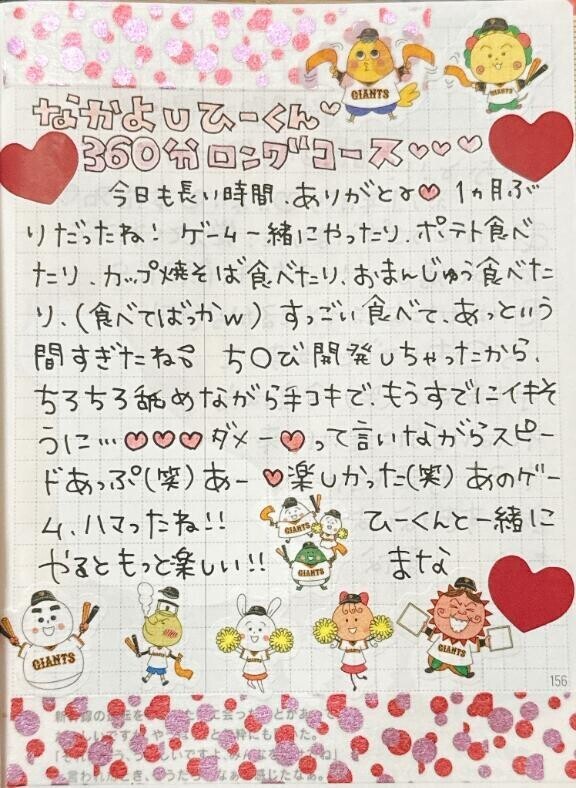 GIANTS
GIANTS
なかよしひーくん♡
360分ロングコース♡♡♡
今日も長い時間、ありがとょ♡ 1ヵ月ぶ
りだったね! ゲーム一緒にやったり、ポテト食べ
たり、カップ焼そば食べたり、おまんじゅう食べた
り、(食べてばっかw) すっごい食べて、あっという
間すぎたね ち〇び開発しちゃったから、
ちろちろ舐めながら手コキで、もうすでにイキそ
うに…♡♡♡ダメー♡って言いながらスピー
ドあっぷ(笑)あー♡楽しかった(笑)あのゲー
ム、ハマったね!! ひーくんと一緒に
やるともっと楽しい!! まな
GIANTS
GIANTS
GIANTS
GIANTS
156